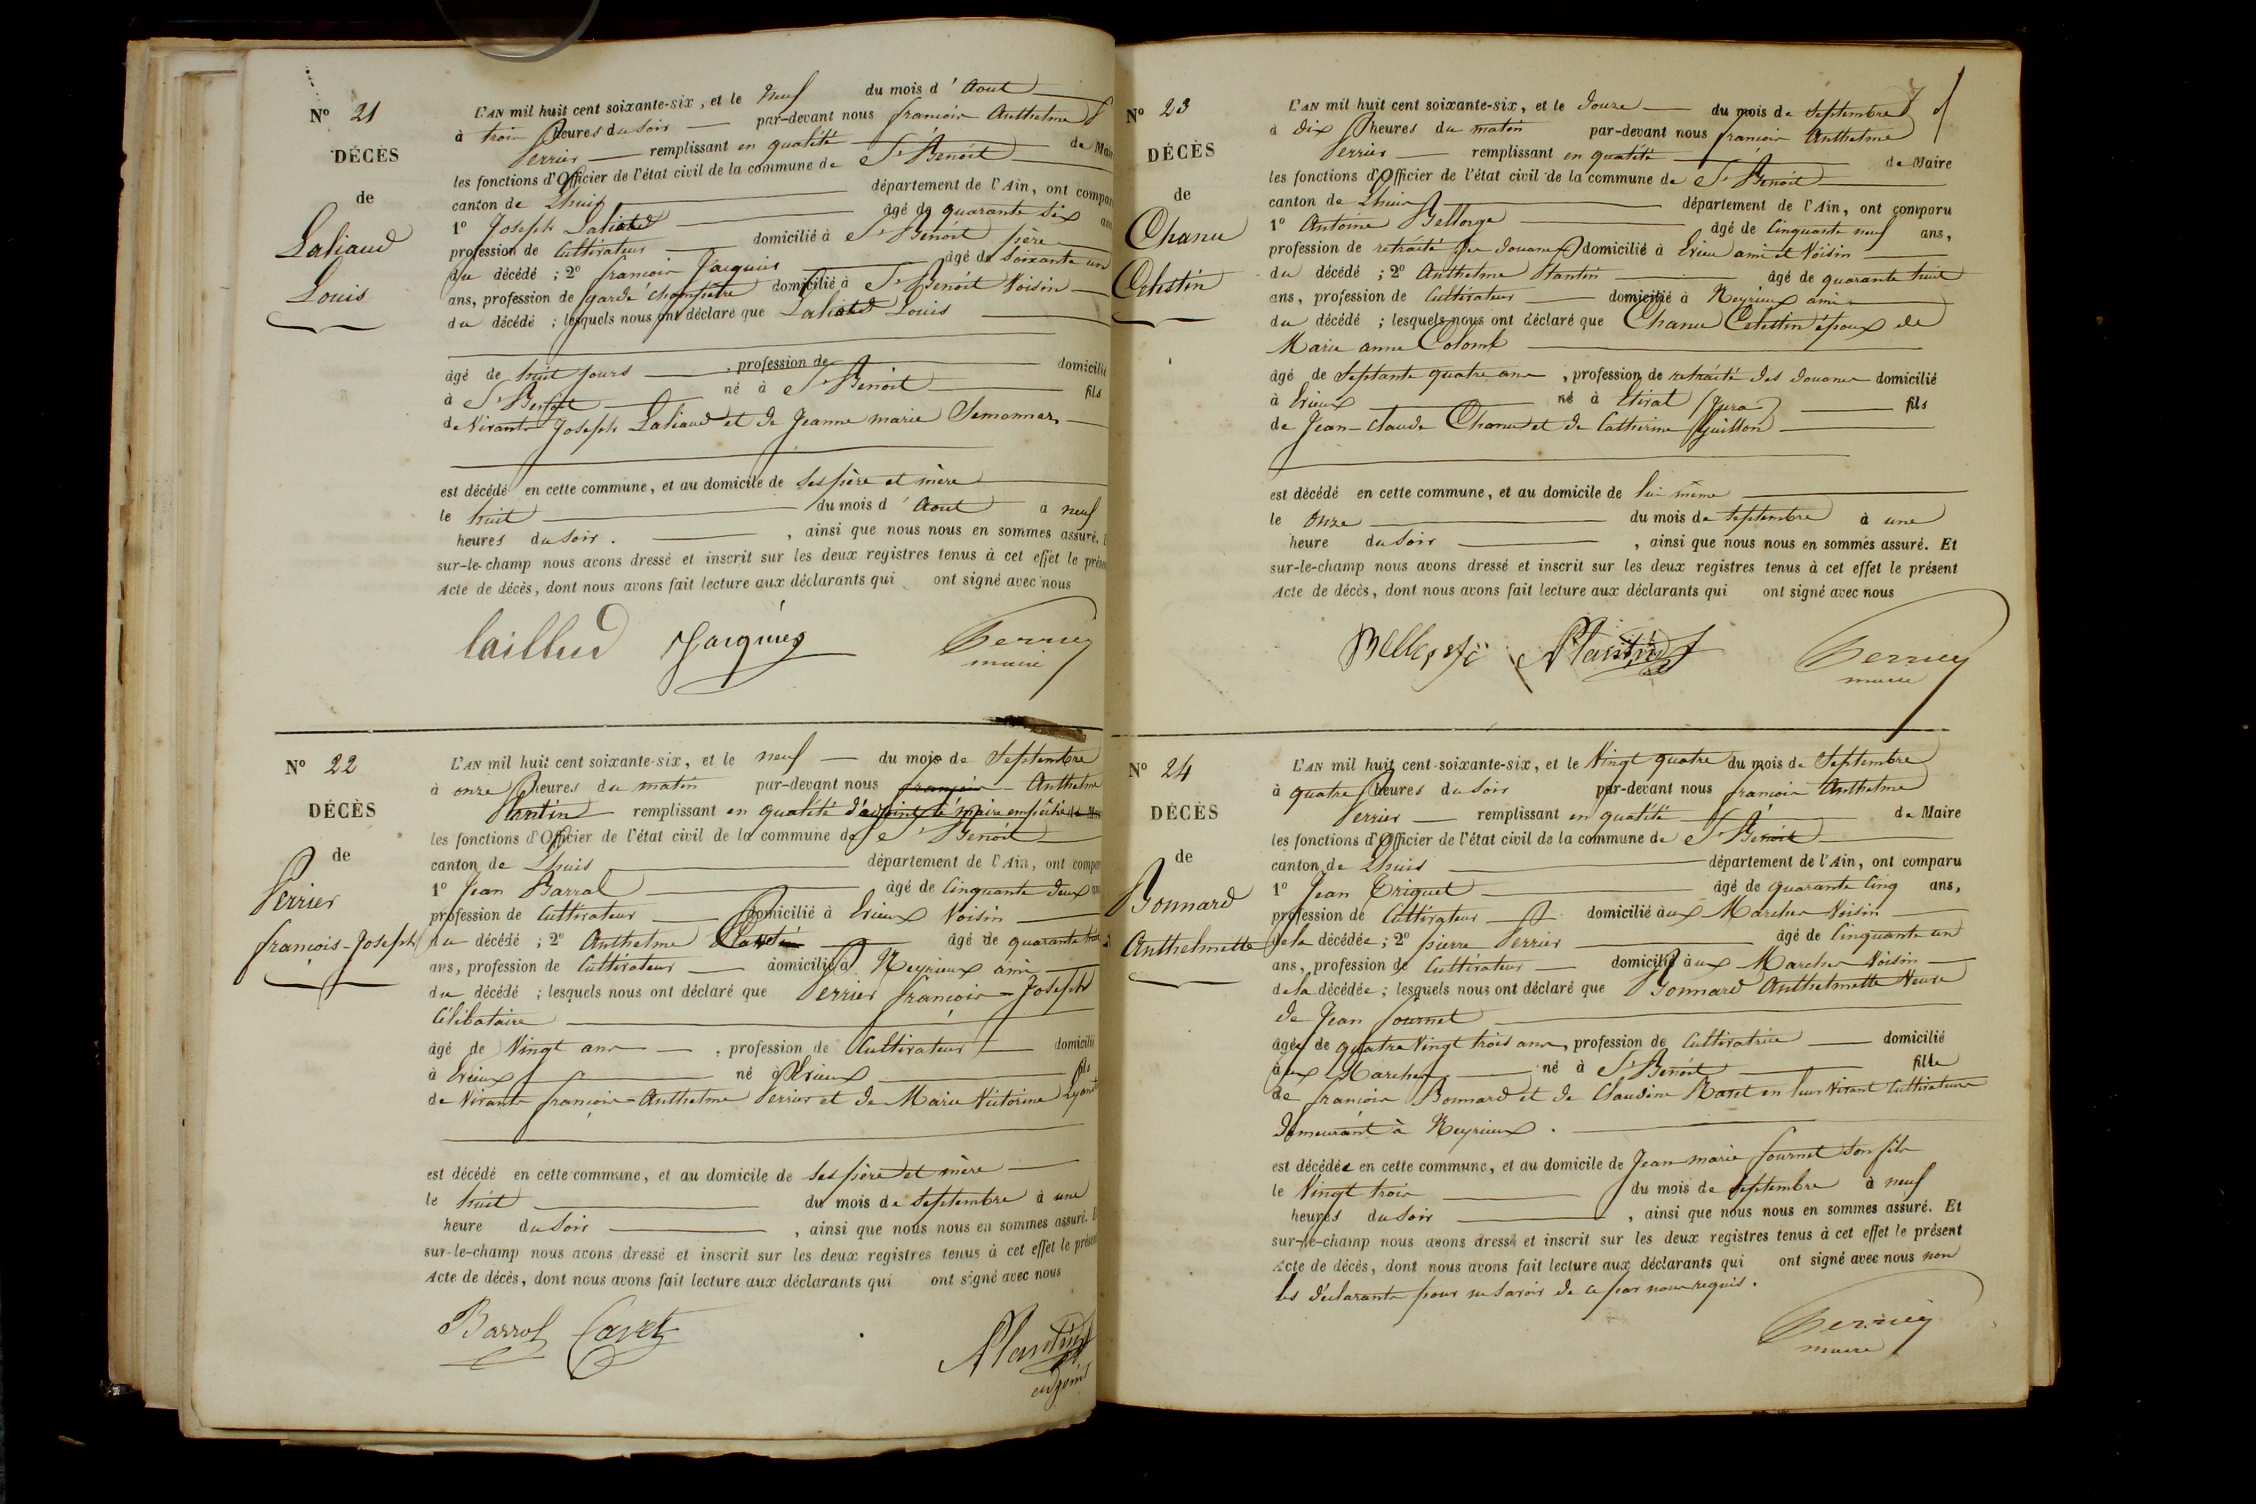 N° 21
DÉCÈS
de
Laliaud
Louis
L'AN mil huit cent soixante-six, et le neuf du mois d'Aout
à trois heures du soir par-devant nous françois Anthelme
Perrier remplissant en qualité de Maire
les fonctions d'Officier de l'état civil de la commune de St Benoit
canton de Lhuis département de l'Ain, ont comparu
1° Joseph Laliaud âgé de quarante six ans
profession de Cultivateur domicilié à St Benoit père
du décédé ; 2° françois Jacquier âgé de soixante un
ans, profession de garde champêtre domicilié à St Benoit Voisin
du décédé ; lesquels nous ont déclaré que Laliaud Louis
âgé de huit jours , profession de domicilié
à St Benoit né à St Benoit fils
de Vivants Joseph Laliaud et de Jeanne marie
est décédé en cette commune, et au domicile de ses père et mère
le huit du mois d'Aout à neuf
heures du soir. , ainsi que nous nous en sommes assuré.
sur-le-champ nous avons dressé et inscrit sur les deux registres tenus à cet effet le présent
Acte de décès, dont nous avons fait lecture aux déclarants qui ont signé avec nous
lailliud Jacquier Perrier
maire
N° 22
DÉCÈS
de
Perrier
françois-Joseph
L'AN mil huit cent soixante-six, et le neuf du mois de Septembre
à onze heures du matin par-devant nous françois Anthelme
Plantin remplissant en qualité d'adjoint le maire empêché de Maire
les fonctions d'Officier de l'état civil de la commune de St Benoit
canton de Lhuis département de l'Ain, ont comparu
1° Jean Barral âgé de Cinquante deux ans
profession de Cultivateur domicilié à Crieux Voisin
du décédé ; 2° Anthelme âgé de quarante
ans, profession de Cultivateur domicilié à Neyrieux ami
du décédé ; lesquels nous ont déclaré que Perrier françois-Joseph
Célibataire
âgé de Vingt ans , profession de Cultivateur domicilié
à Crieux né à Crieux fils
de Vivants françois-Anthelme Perrier et de Marie Victorine
est décédé en cette commune, et au domicile de ses père et mère
le huit du mois de Septembre à une
heure du soir , ainsi que nous nous en sommes assuré.
sur-le-champ nous avons dressé et inscrit sur les deux registres tenus à cet effet le présent
Acte de décès, dont nous avons fait lecture aux déclarants qui ont signé avec nous
Barral Cavet APlantin
adjoint
N° 23
DÉCÈS
de
Chanu
Celestin
L'AN mil huit cent soixante-six, et le douze du mois de Septembre
à dix heures du matin par-devant nous françois Anthelme
Perrier remplissant en qualité de Maire
les fonctions d'Officier de l'état civil de la commune de St Benoit
canton de Lhuis département de l'Ain, ont comparu
1° Antoine Bellorge âgé de Cinquante neuf ans,
profession de retraité des douanes domicilié à Crieux ami et Voisin
du décédé ; 2° Anthelme Plantin âgé de quarante huit
ans, profession de Cultivateur domicilié à Neyrieux ami
du décédé ; lesquels nous ont déclaré que Chanu Celestin époux de
Marie anne Colomb
âgé de Septante quatre ans , profession de retraité des douanes domicilié
à Crieux né à (Jura) fils
de Jean-claude Chanu et de Catherine Guillon
est décédé en cette commune, et au domicile de lui même
le onze du mois de Septembre à une
heure du soir , ainsi que nous nous en sommes assuré. Et
sur-le-champ nous avons dressé et inscrit sur les deux registres tenus à cet effet le présent
Acte de décès, dont nous avons fait lecture aux déclarants qui ont signé avec nous
APlantin Perrier
maire
N° 24
DÉCÈS
de
Bonnard
Anthelmette
L'AN mil huit cent soixante-six, et le Vingt quatre du mois de Septembre
à quatre heures du soir par-devant nous françois Anthelme
Perrier remplissant en qualité de Maire
les fonctions d'Officier de l'état civil de la commune de St Benoit
canton de Lhuis département de l'Ain, ont comparu
1° Jean Triquet âgé de quarante Cinq ans,
profession de Cultivateur domicilié aux Marches Voisin
de la décédée ; 2° pierre Perrier âgé de Cinquante un
ans, profession de Cultivateur domicilié aux Marches Voisin
de la décédée ; lesquels nous ont déclaré que Bonnard Anthelmette Veuve
de Jean fournet
âgée de quatre Vingt trois ans, profession de Cultivatrice domicilié
aux Marches né à St Benoit fille
de françois Bonnard et de Claudine en leur Vivant Cultivateurs
demeurant à Neyrieux.
est décédée en cette commune, et au domicile de Jean marie fournet son fils
le Vingt trois du mois de Septembre à neuf
heures du soir , ainsi que nous nous en sommes assuré. Et
sur-le-champ nous avons dressé et inscrit sur les deux registres tenus à cet effet le présent
Acte de décès, dont nous avons fait lecture aux déclarants qui ont signé avec nous non
les déclarants pour ne savoir de ce par nous requis.
Perrier
maire